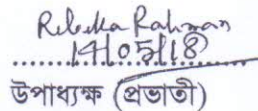 Rebeka Rahman
14/05/18
উপাধ্যক্ষ (প্রভাতী)